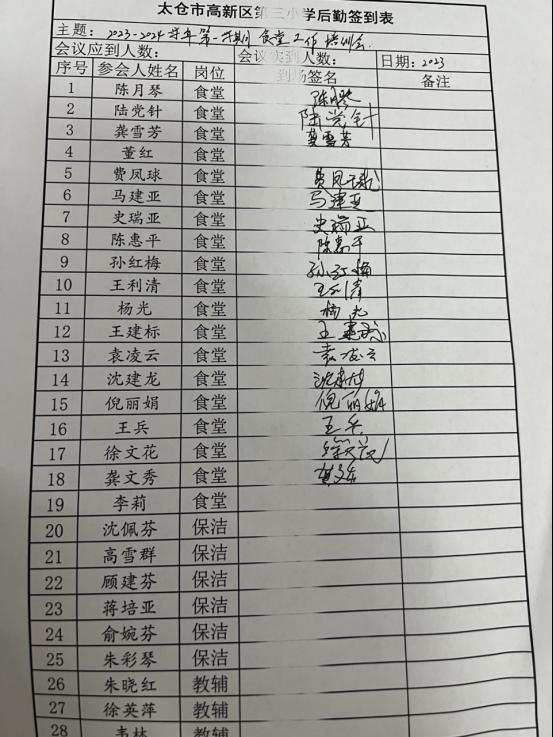 太仓市高新区第三小学后勤签到表
主题：2023-2024学年第一学期 食堂工作培训会
会议应到人数： 会议实到人数： 日期：2023
序号 参会人姓名 岗位 到场签名 备注
1 陈月琴 食堂
2 陆党针 食堂 陆党针
3 龚雪芳 食堂 龚雪芳
4 董红 食堂
5 费凤球 食堂 费凤球
6 马建亚 食堂 马建亚
7 史瑞亚 食堂 史瑞亚
8 陈惠平 食堂 陈惠平
9 孙红梅 食堂 孙红梅
10 王利清 食堂 王利清
11 杨光 食堂 杨光
12 王建标 食堂 王建标
13 袁凌云 食堂 袁凌云
14 沈建龙 食堂 沈建龙
15 倪丽娟 食堂 倪丽娟
16 王兵 食堂 王兵
17 徐文花 食堂 徐文花
18 龚文秀 食堂
19 李莉 食堂
20 沈佩芬 保洁
21 高雪群 保洁
22 顾建芬 保洁
23 蒋培亚 保洁
24 俞婉芬 保洁
25 朱彩琴 保洁
26 朱晓红 教辅
27 徐英萍 教辅
28 韦林 教辅